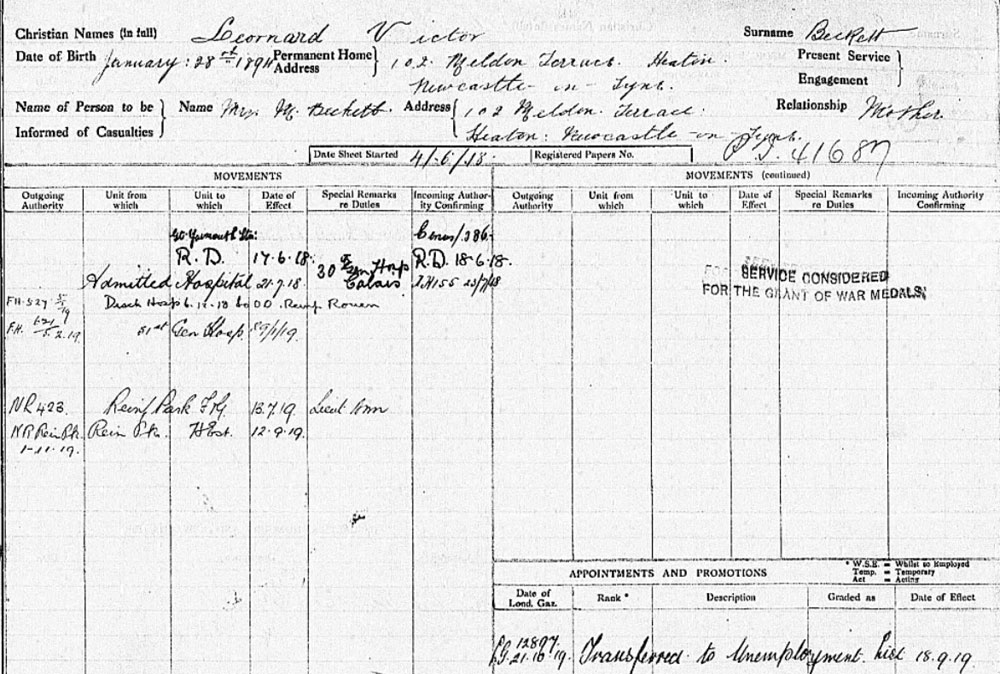 Christian Names (in full) Leornard Victor Surname Beckett
Date of Birth January: 28th 1891 Permanent Home Address 102. Meldon Terrace. Heaton. Present Service
Newcastle - on - Tyne. Engagement
Name of Person to be Informed of Casualties Name Mrs. M. Beckett. Address 102 Meldon Terrace: Relationship Mother.
Heaton: Newcastle - on - Tyne.
Date Sheet Started 4/6/18. Registered Papers No. P/S. 41687
MOVEMENTS MOVEMENTS (continued)
Outgoing Authority Unit from which Unit to which Date of Effect Special Remarks re Duties Incoming Authority Confirming Outgoing Authority Unit from which Unit to which Date of Effect Special Remarks re Duties Incoming Authority Confirming
Gt Yarmouth Stn: /386.
R.D. 17.6.18. R.D. 18-6-18.
Admitted Hospital 21.7.18. 30 Hosp Calais 23/7/18
SERVICE CONSIDERED
FOR THE GRANT OF WAR MEDALS.
F.H. 527 Disch Hosp 6.12.18 to OO. Reinf Rouen
F.H. 5.2.19. 51st Gen Hosp. /1/19.
NR 423. Reinf Park 13.7.19
NR Rein Pk. 1-11-19. Rein Pk. HEst. 12.9.19.
* W.S.E. = Whilst so Employed
Temp. = Temporary
Act = Acting
APPOINTMENTS AND PROMOTIONS
Date of Lond. Gaz. Rank * Description Graded as Date of Effect
12897 L.G. 21.10.19. Transferred to Unemployment List 18.9.19.